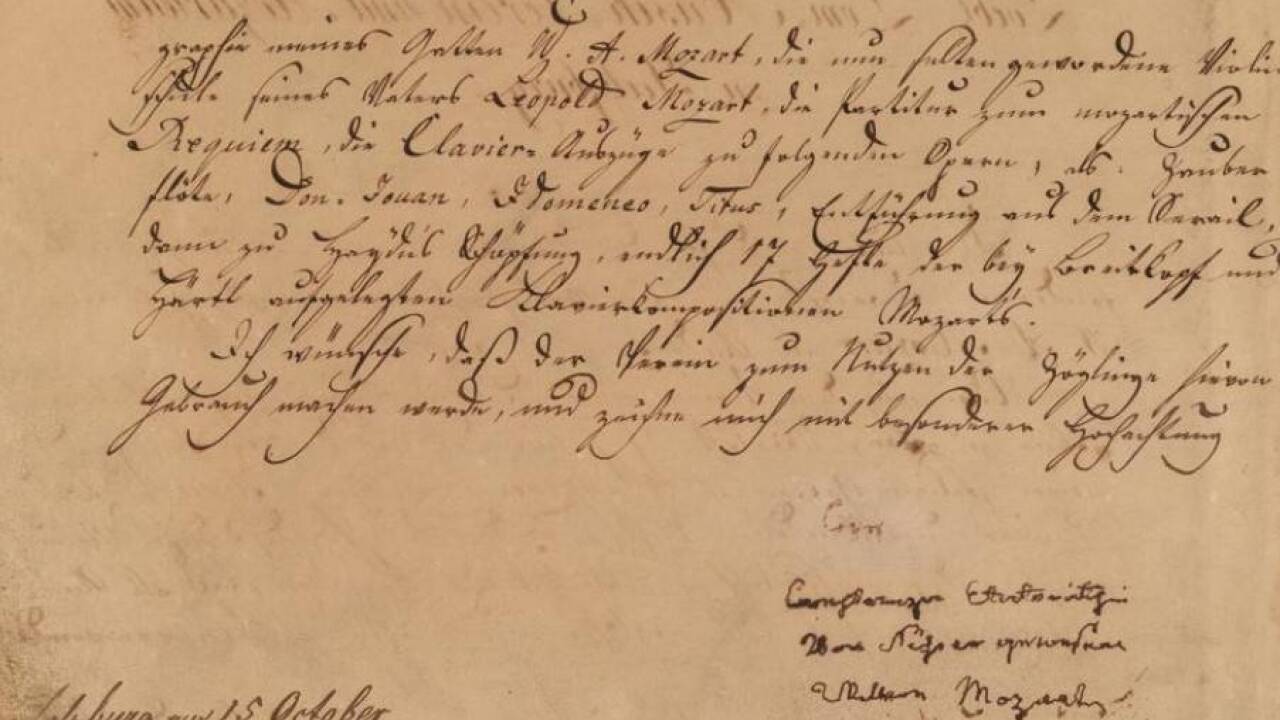 graphie meines Gatten W. A. Mozart, die nun selten gewordene Violin
schule seines Vaters Leopold Mozart, die Partitur zum mozartischen
Requiem, die Clavier= Auszüge zu folgenden Opern, als. Zauber
flöte, Don. Jouan, Idomeneo, Titus, Entführung aus dem Serail,
dann zu Haydn's Schöpfung, endlich 17 Hefte der bey Breitkopf und
Härtl aufgelegten Klavierkompositionen Mozarts.
Ich wünsche, daß der Verein zum Nutzen der Zöglinge hievon
Gebrauch machen werde, und zeichne mich mit besonderer Hochachtung
Constanze Etatsräthin
Von Nißen gewesene
Mozart
am 15 October